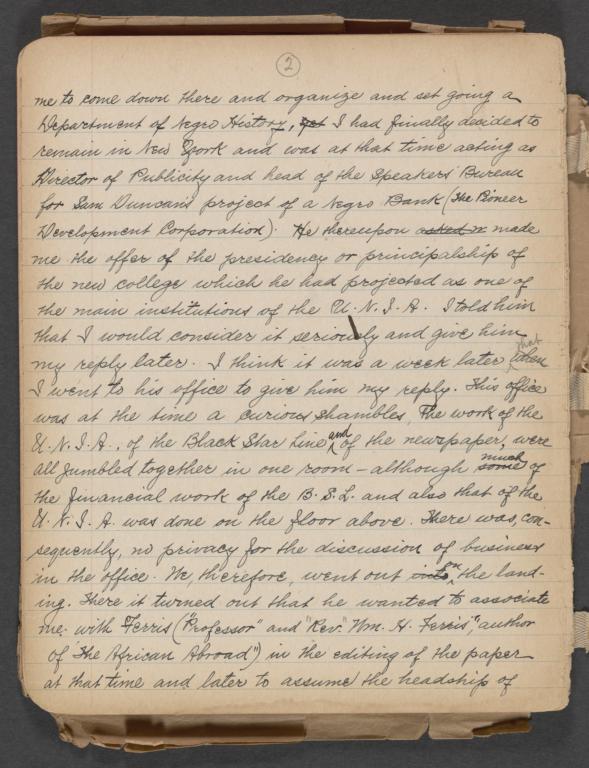 2
me to come down there and organize and set going a
Department of Negro History, yet I had finally decided to
remain in New York and was at that time acting as
Director of Publicity and head of the Speakers' Bureau
for Sam Duncan's project of a Negro Bank (The Pioneer
Development Corporation). He thereupon asked m made
me the offer of the presidency or principalship of
the new college which he had projected as one of
the main institutions of the U.N.I.A. I told him
that I would consider it seriously and give him
my reply later. I think it was a week later when that
I went to his office to give him my reply. This office
was at the time a curious shambles. The work of the
U.N.I.A., of the Black Star Line and of the newspaper, were
all jumbled together in one room – although some much of
the financial work of the B.S.L. and also that of the
U.N.I.A. was done on the floor above. There was, con-
sequently, no privacy for the discussion of business
in the office. We, therefore, went out into on the land-
ing. There it turned out that he wanted to associate
me with Ferris ("Professor" and "Rev." Wm. H. Ferris", author
of "The African Abroad") in the editing of the paper
at that time and later to assume the headship of